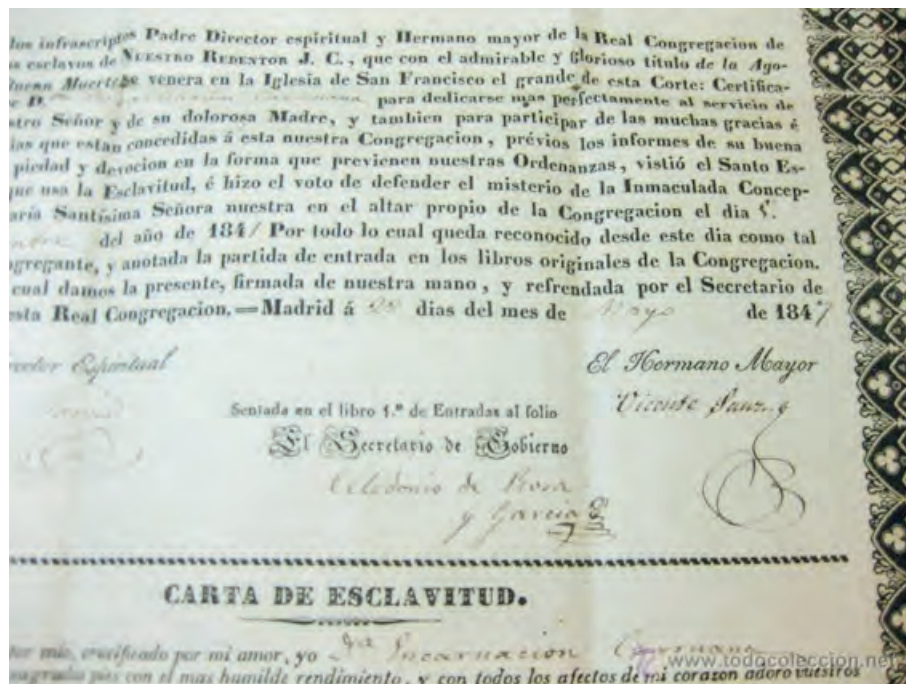 los infrascriptos Padre Director espiritual y Hermano mayor de la Real Congregacion de
esclavos de NUESTRO REDENTOR J. C., que con el admirable y glorioso título de la Ago-
buena Muerte se venera en la Iglesia de San Francisco el grande de esta Corte: Certifica-
D. para dedicarse mas perfectamente al servicio de
stro Señor y de su dolorosa Madre, y tambien para participar de las muchas gracias é
ias que estan concedidas á esta nuestra Congregacion, prévios los informes de su buena
piedad y devocion en la forma que previenen nuestras Ordenanzas, vistió el Santo Es-
que usa la Esclavitud, é hizo el voto de defender el misterio de la Inmaculada Concep-
aría Santísima Señora nuestra en el altar propio de la Congregacion el dia
del año de 184 Por todo lo cual queda reconocido desde este dia como tal
ngregante, y anotada la partida de entrada en los libros originales de la Congregacion.
cual damos la presente, firmada de nuestra mano, y refrendada por el Secretario de
esta Real Congregacion.=Madrid á dias del mes de Mayo de 1847
rector Espiritual El Hermano Mayor
Sentada en el libro 1.º de Entradas al folio Vicente Sanz
El Secretario de Gobierno
Celedonio de
y Garcia
CARTA DE ESCLAVITUD.
mio, crucificado por mi amor, yo Dª Encarnacion
sagrados pies con el mas humilde rendimiento, y con todos los afectos de mi corazon adoro vuestros
www.todocoleccion.net